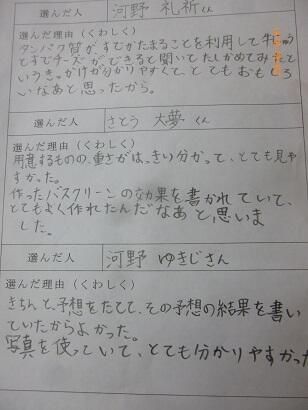 選んだ人 河野 礼祈くん
選んだ理由（くわしく）
タンパク質が、すでかたまることを利用して牛にゅう
とすでチーズができると聞いてたしかめてみたと
いうき。かけが分かりやすくて、とてもおもしろ
いなあと思ったから。
選んだ人 さとう 大夢くん
選んだ理由（くわしく）
用意するものの、重さがは、きり分かって、とても見や
すかった。
作ったバスクリーンの効果を書かれていて、
とてもよく作れたんだなあと思いま
した。
選んだ人 河野 ゆきじさん
選んだ理由（くわしく）
きちんと、予想をたてて、その予想の結果を書い
ていたからよかった。
写真を使っていて、とても分かりやすかった